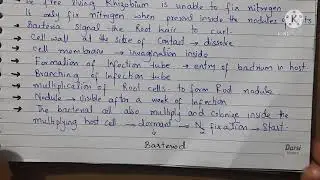 free living Rhizobium is unable to fix nitrogen
only fix nitrogen when present inside the nodules
Bacteria signals the Root hair to curl.
→ Cell wall at the site of Contact → dissolve
→ cell membrane → invagination inside
→ Formation of Infection tube → entry of bactrium in host
→ Branching of Infection tube
→ multiplication of Root cells to form Root nodule
→ Nodule → visible after a week of Infection
→ The bacterial cell also multiply and Colonize inside the
multiplying host cell → dormant → N2 fixation → Start
Bacteroid